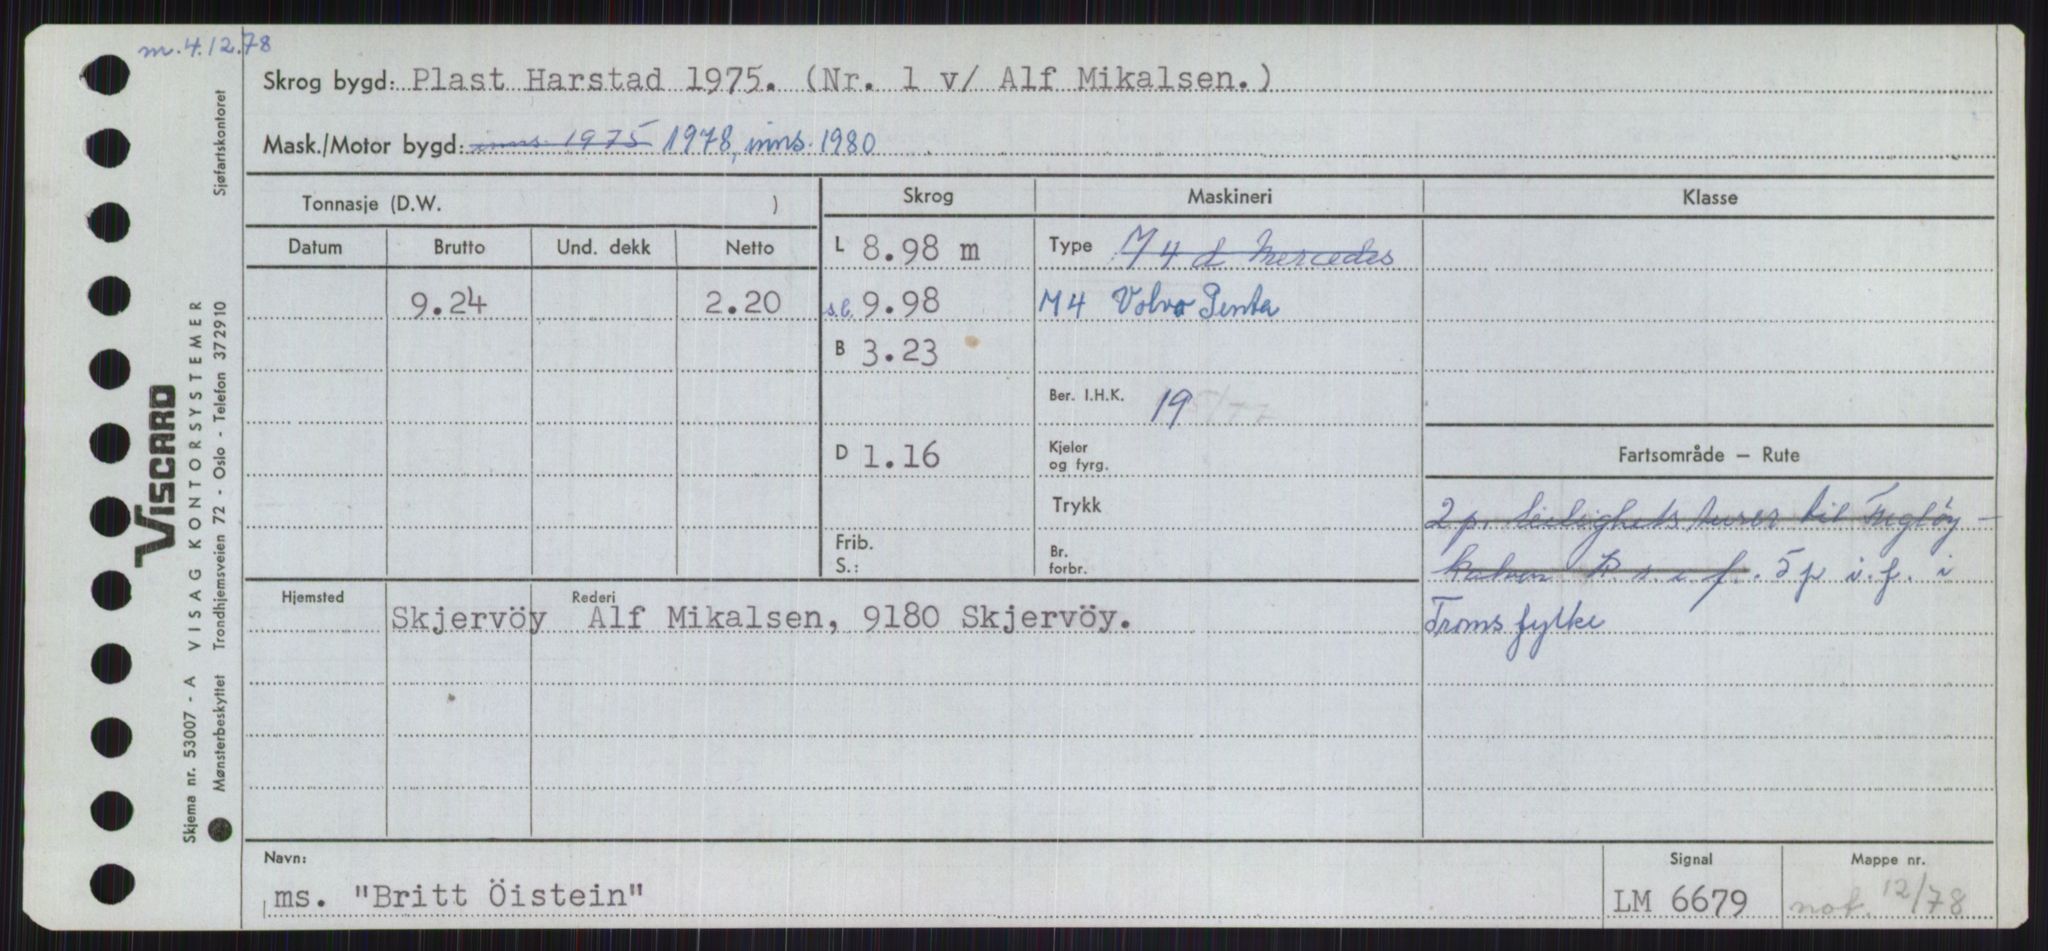 m. 4.12.78
Skrog bygd: Plast Harstad 1975. (Nr. 1 v/ Alf Mikalsen.)
Mask./Motor bygd: inns. 1975 1978, inns. 1980
Tonnasje (D.W. )
Skrog
Maskineri
Klasse
Datum Brutto Und. dekk Netto
L 8.98 m
Type M4 d Mercedes
9.24 2.20
s.l. 9.98
M4 Volvo Penta
B 3.23
Ber. I.H.K. 19
D 1.16
Kjeler
og fyrg.
Fartsområde – Rute
Trykk
2 p. leilighets turer til Fugløy -
Frib.
S.:
Br.
forbr.
5 p i.f. i
Troms fylke
Hjemsted
Rederi
Skjervöy Alf Mikalsen, 9180 Skjervöy.
Navn:
ms. "Britt Öistein"
Signal
LM 6679
Mappe nr.
not. 12/78
VISCARD
Skjema nr. 53007 - A VISAG KONTORSYSTEMER
Mønsterbeskyttet Trondhjemsveien 72 - Oslo - Telefon 372910 Sjøfartskontoret